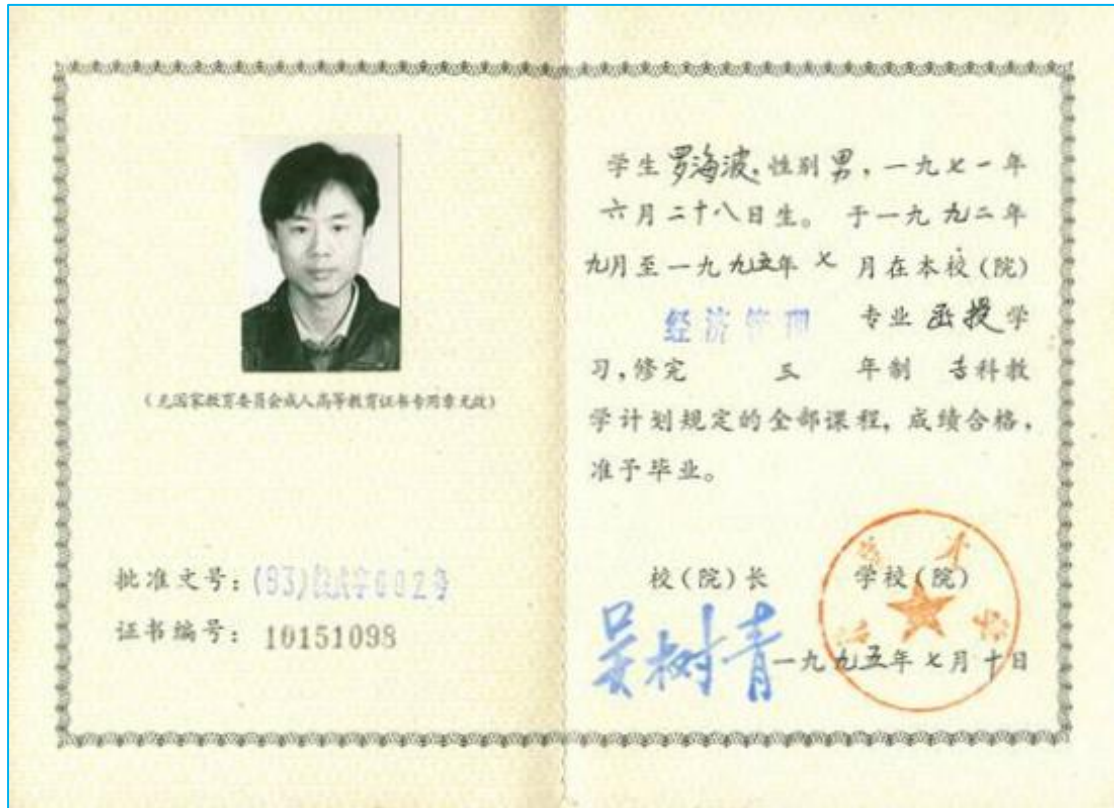 (无国家教育委员会成人高等教育证书专用章无效)
批准文号：(83)教成字002号
证书编号：10151098
学生罗海波，性别男，一九七一年
六月二十八日生。于一九九二年
九月至一九九五年七月在本校(院)
经济管理 专业函授学
习，修完 三 年制 专科教
学计划规定的全部课程，成绩合格，
准予毕业。
校(院)长 学校(院)
吴树青 一九九五年七月十日